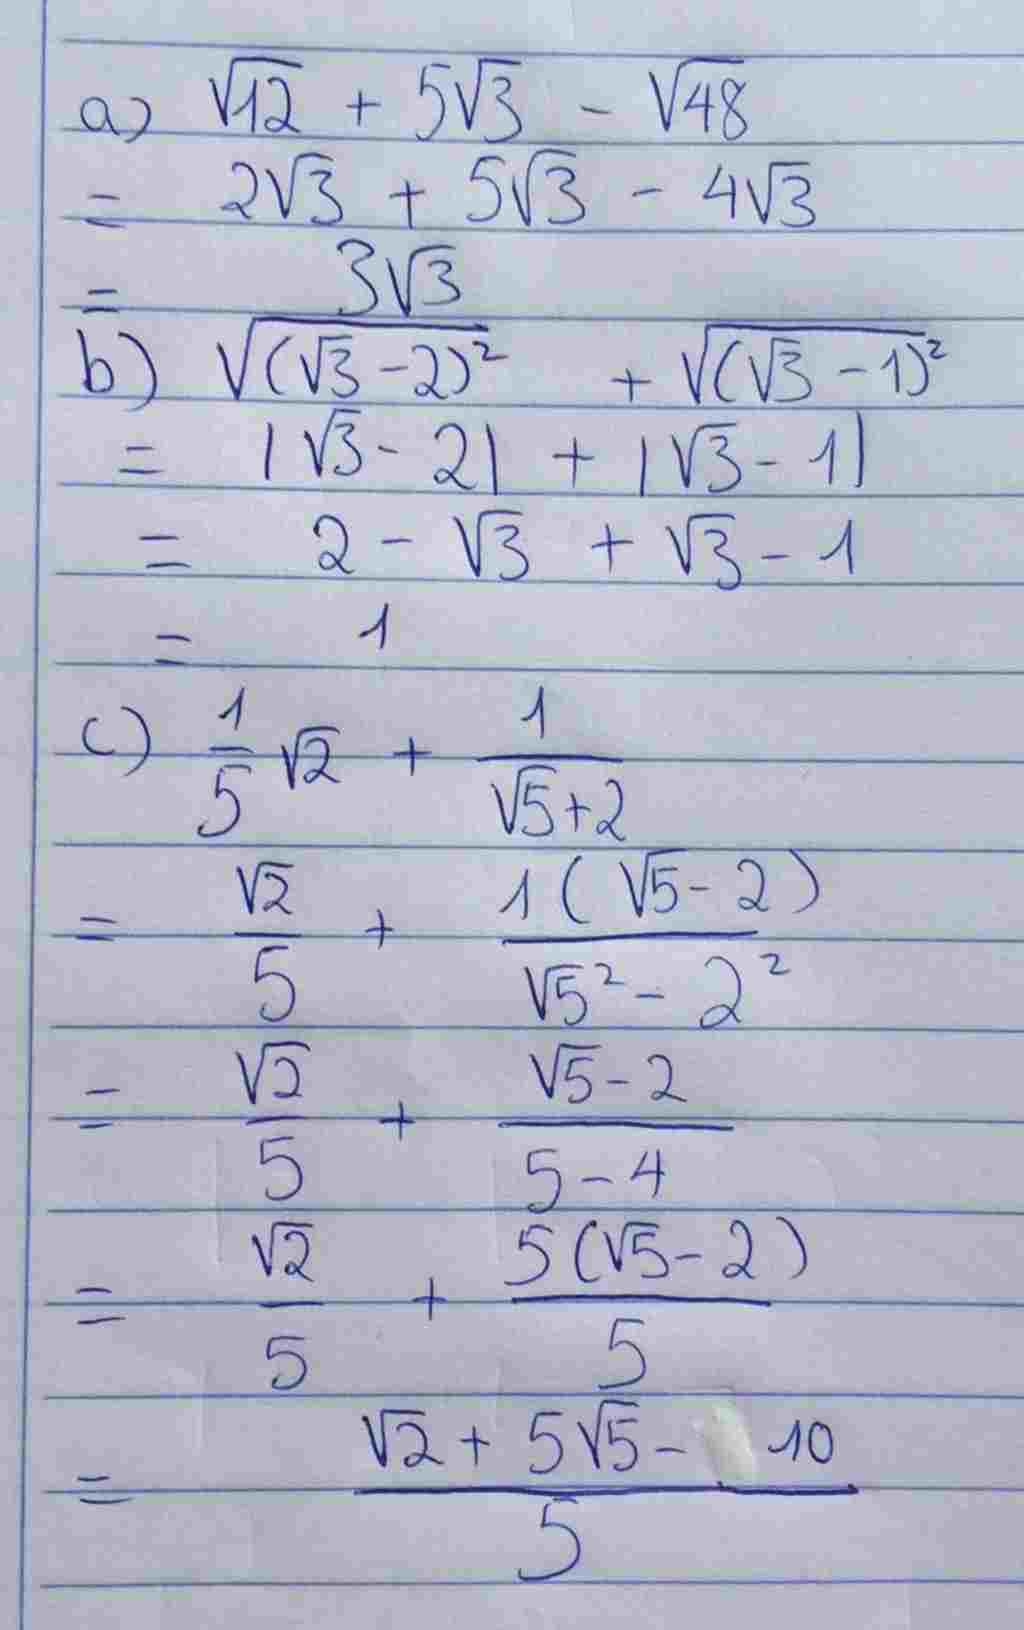 a) √12 + 5√3 - √48
= 2√3 + 5√3 - 4√3
= 3√3
b) √(√3 - 2)² + √(√3 - 1)²
= |√3 - 2| + |√3 - 1|
= 2 - √3 + √3 - 1
= 1
c) 1/5 √2 + 1/(√5+2)
= √2/5 + 1(√5-2)/(√5² - 2²)
= √2/5 + (√5-2)/(5-4)
= √2/5 + 5(√5-2)/5
= (√2 + 5√5 - 10)/5